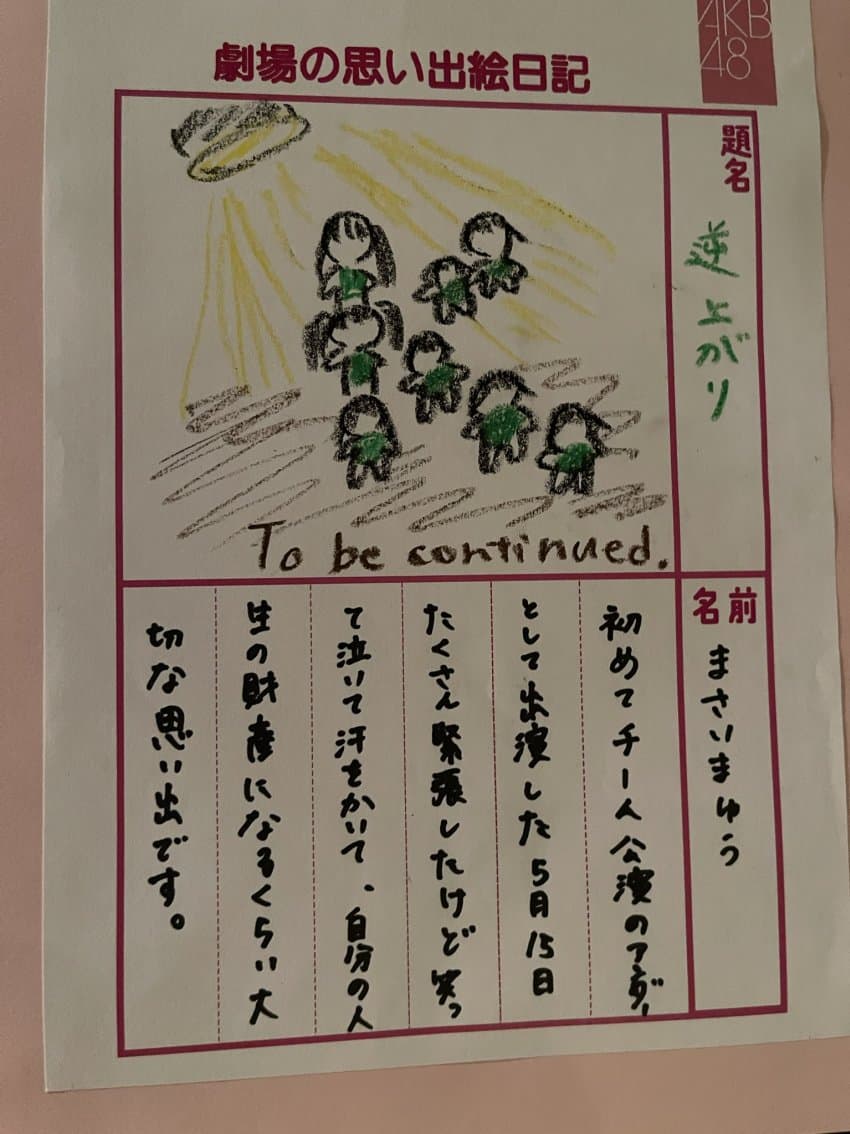 AKB
48
劇場の思い出絵日記
題名
逆上がり
To be continued.
名前
まさいまゆう
初めてチーム公演のアンダー
として出演した5月15日
たくさん緊張したけど笑っ
て泣いて汗をかいて、自分の人
生の財産になるくらい大
切な思い出です。